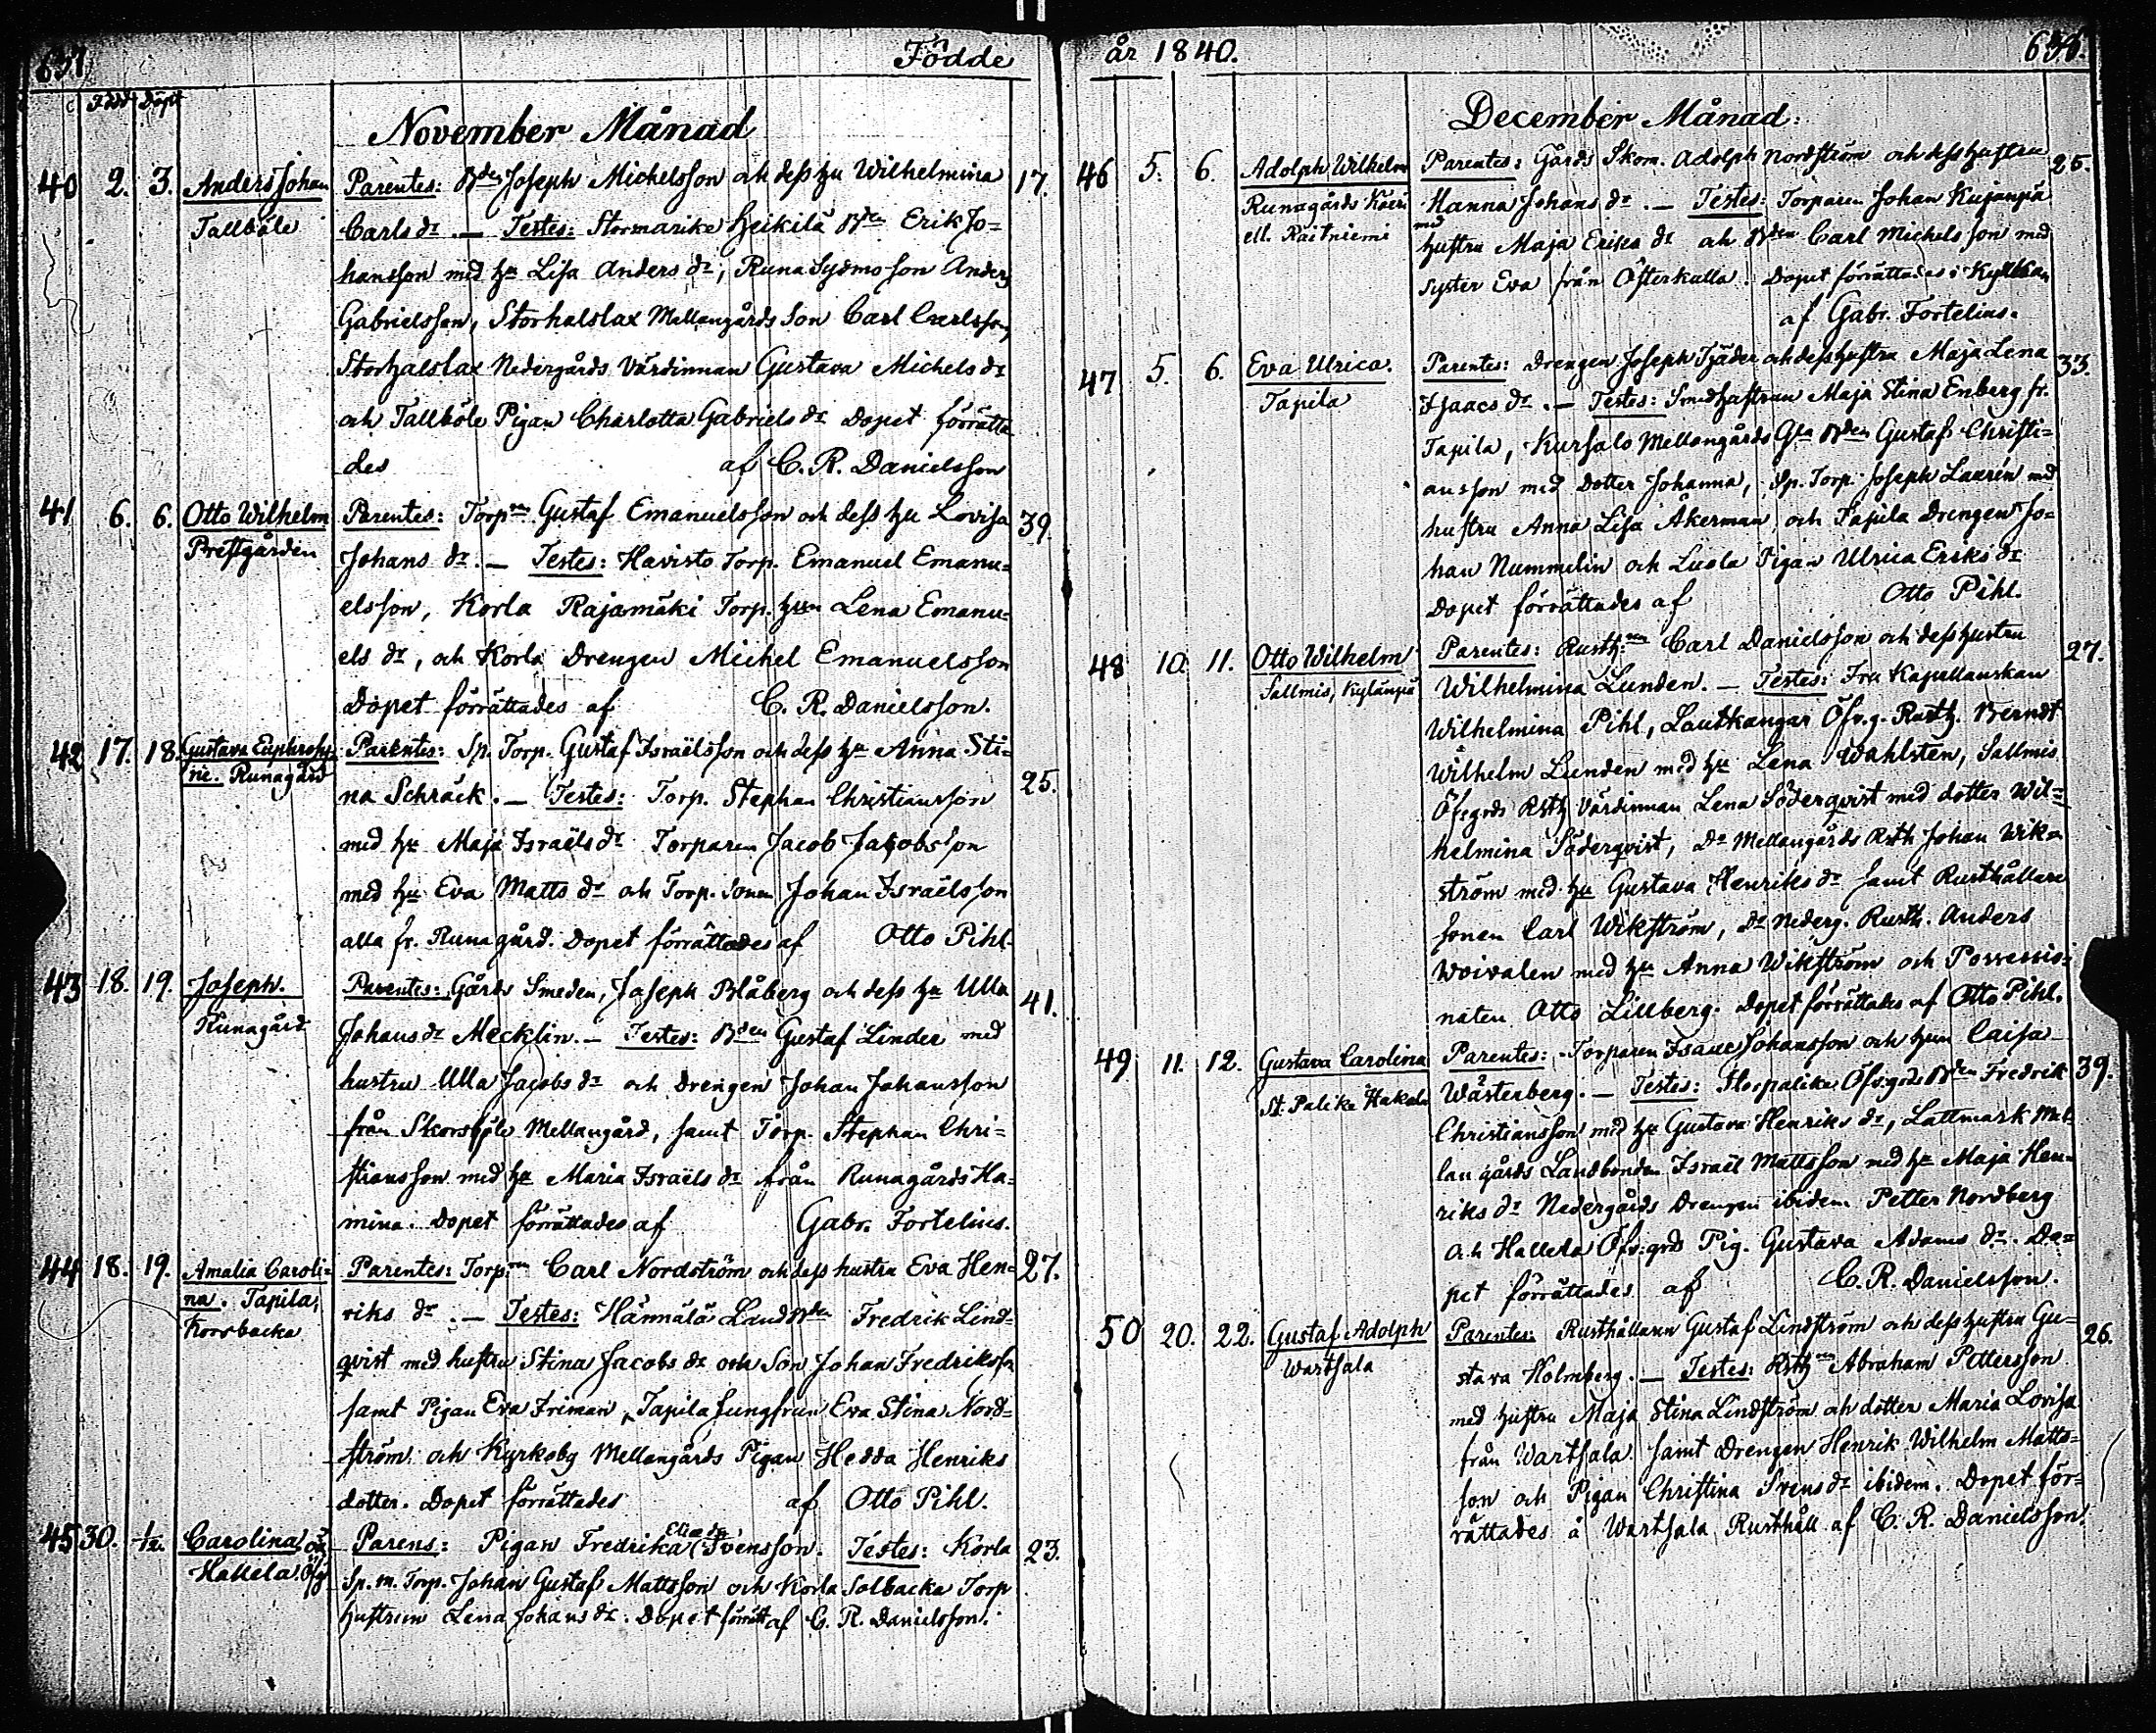 637 Födde
Född Döpt
November Månad
40 2. 3. Anders Johan Parentes: Bden Joseph Michelsson och dess hu Wilhelmina 17.
Tallböle Carls dr. — Testes: Stormarike Heikilä Bden Erik Jo=
hansson med hu Lisa Anders dr, Runa Sydmo son Anders
Gabrielsson, Storhalslax Mellangårds Son Carl Carlsson,
Storhalslax Nedergårds Värdinnan Gustava Michels dr
och Tallböle Pigan Charlotta Gabriels dr Dopet förrätta
des af C. R. Danielsson
41 6. 6. Otto Wilhelm Parentes: Torpn Gustaf Emanuelsson och dess hu Lovisa 39.
Prestgården Johans dr. — Testes: Havisto Torp. Emanuel Emanu=
elsson, Korla Rajamäki Torp. hun Lena Emanu=
els dr, och Korla Drengen Michel Emanuelsson
Dopet förrättades af C. R. Danielsson.
42 17. 18. Gustava Euphrosy= Parentes: Sp. Torp. Gustaf Israëlsson och dess hu Anna Sti=
ne. Runagård na Schräck. — Testes: Torp. Stephan Christiansson 25.
med hu Maja Israëls dr Torparen Jacob Jacobsson
med hu Eva Matts dr och Torp. Sonen Johan Israëlsson
alla fr. Runagård. Dopet förrättades af Otto Pihl
43 18. 19. Joseph. Parentes: Gårds Smeden, Joseph Blåberg och dess hu Ulla 41.
Runagård Johans dr Mecklin. — Testes: Bden Gustaf Linder med
hustru Ulla Jacobs dr och Drengen Johan Johansson
från Skorsböle Mellangård, samt Torp. Stephan Chri=
stiansson med hu Maria Israëls dr från Runagårds Ha=
mina. Dopet förrättades af Gabr. Fortelius.
44 18. 19. Amalia Caroli= Parentes: Torpn Carl Nordström och dess hustru Eva Hen= 27.
na. Tapila, riks dr. — Testes: Hännälä Land Bden Fredrik Lind=
Korsbacka qvist med hustru Stina Jacobs dr och Son Johan Fredriksson
samt Pigan Eva Friman, Tapila Jungfrun Eva Stina Nord=
ström och Kyrkoby Mellangårds Pigan Hedda Henriks
dotter. Dopet förrättades af Otto Pihl.
45 30. 1/12. Carolina, oä Parens: Pigan Fredrika (Elias dr) Svensson. Testes: Korla 23.
Hallela Öfg Sp. m. Torp. Johan Gustaf Mattsson och Korla Solbacka Torp
hustrun Lena Johans dr. Dopet förrätt af C. R. Danielsson.
år 1840. 638.
December Månad:
46 5. 6. Adolph Wilhelm Parentes: Gårds Skom. Adolph Nordström och dess hustru 25.
Runagårds Hanna Johans dr. — Testes: Torparen Johan Kujanpää
ell. Raitniemi med hustru Maja Eriks dr och Bden Carl Michelsson med
syster Eva från Österkulla. Dopet förrättades i Kyrkan
af Gabr. Fortelius.
47 5. 6. Eva Ulrica. Parentes: Drengen Joseph Tjäder och dess hustru Maja Lena 33.
Tapila Isaacs dr. — Testes: Smedhustrun Maja Stina Enberg fr.
Tapila, Kursalo Mellangårds Gla Bden Gustaf Christi=
ansson med dotter Johanna, Sp. Torp. Joseph Laurén med
hustru Anna Lisa Åkerman, och Tapila Drengen Jo=
han Nummelin och Luola Pigan Ulrica Eriks dr
Dopet förrättades af Otto Pihl.
48 10. 11. Otto Wilhelm Parentes: Rusthn Carl Danielsson och dess hustru 27.
Sallmis, Kylänpää Wilhelmina Lunden. — Testes: Fru Kapellanskan
Wilhelmina Pihl, Lautkangar Öfv.g. Rusth. Berndt
Wilhelm Lunden med hu Lena Wahlsten, Sallmis
Öfvgrds Rsth Värdinnan Lena Söderqvist med dotter Wil=
helmina Söderqvist, Do Mellangårds Rsth Johan Wik=
ström med hu Gustava Henriks dr samt Rusthållare
sonen Carl Wikström, Do Nederg. Rusth. Anders
Woivalen med hu Anna Wikström och Possessio=
naten Otto Lillberg. Dopet förrättades af Otto Pihl.
49 11. 12. Gustava Carolina Parentes: Torparen Isaac Johansson och hun Caisa 39.
St. Palike Hakala Wästerberg. — Testes: Storpalike Öfv:grds Bden Fredrik
Christiansson med hu Gustava Henriks dr, Lattmark Mel
lan gårds Landbonden Israël Mattsson med hu Maja Hen=
riks dr Nedergårds Drengen ibidem Petter Nordberg
och Hallela Öfv:grds Pig. Gustava Adams dr. Do=
pet förrättades af C. R. Danielsson.
50 20. 22. Gustaf Adolph Parentes: Rusthållaren Gustaf Lindström och dess hustru Gu= 26.
Wartsala stava Holmberg. — Testes: Rsthn Abraham Pettersson
med hustru Maja Stina Lindström och dotter Maria Lovisa
från Wartsala samt Drengen Henrik Wilhelm Matts=
son och Pigan Christina Svens dr ibidem. Dopet för=
rättades å Wartsala Rusthåll af C. R. Danielsson.